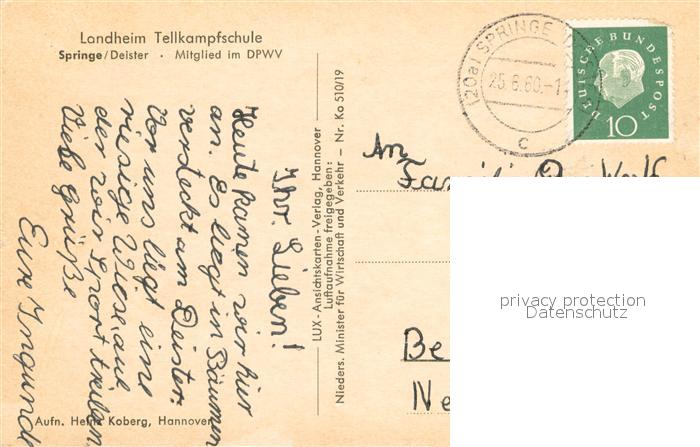 Landheim Tellkampfschule
Springe/Deister · Mitglied im DPWV
Ihr Lieben!
Heute kamen wir hier
an. Es liegt in Bäumen
versteckt am Deister.
Vor uns liegt eine
riesige Wiese auf
der wir Sport treiben
Viele Grüße
Eure Ingund
Aufn. Heinz Koberg, Hannover
LUX-Ansichtskarten-Verlag, Hannover
Luftaufnahme freigegeben:
Nieders. Minister für Wirtschaft und Verkehr – Nr. Ko 510/19
(20a) SPRINGE
25.6.60.-1
c
DEUTSCHE BUNDESPOST
10
An
Familie Wolf
Be
Ne
privacy protection
Datenschutz